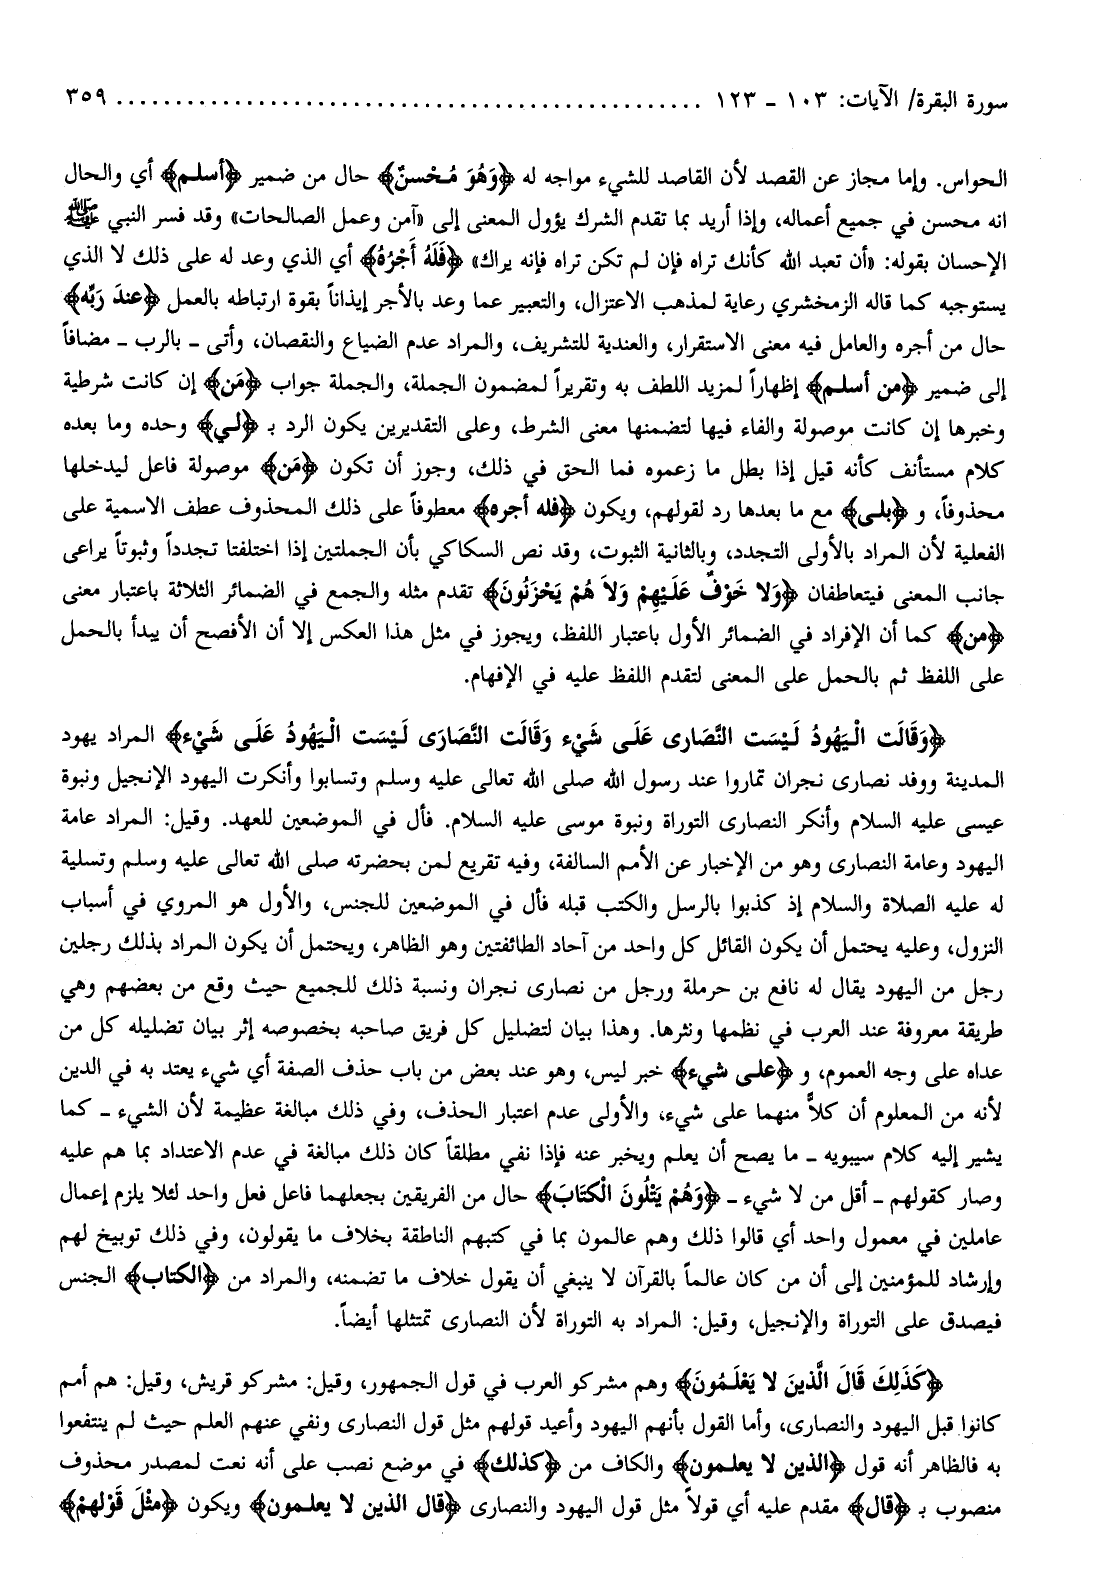 سورة البقرة/ الآيات: ١٠٣ - ١٢٣ ................................................ ٣٥٩
الحواس. وإما مجاز عن القصد لأن القاصد للشيء مواجه له ﴿وَهُوَ مُحْسنٌ﴾ حال من ضمير ﴿أسلم﴾ أي والحال
انه محسن في جميع أعماله، وإذا أريد بما تقدم الشرك يؤول المعنى إلى «آمن وعمل الصالحات» وقد فسر النبي ﷺ
الإحسان بقوله: «أن تعبد الله كأنك تراه فإن لم تكن تراه فإنه يراك» ﴿فَلَهُ أَجْرُهُ﴾ أي الذي وعد له على ذلك لا الذي
يستوجبه كما قاله الزمخشري رعاية لمذهب الاعتزال، والتعبير عما وعد بالأجر إيذاناً بقوة ارتباطه بالعمل ﴿عندَ رَبِّه﴾
حال من أجره والعامل فيه معنى الاستقرار، والعندية للتشريف، والمراد عدم الضياع والنقصان، وأتى - بالرب - مضافاً
إلى ضمير ﴿من أسلم﴾ إظهاراً لمزيد اللطف به وتقريراً لمضمون الجملة، والجملة جواب ﴿مَن﴾ إن كانت شرطية
وخبرها إن كانت موصولة والفاء فيها لتضمنها معنى الشرط، وعلى التقديرين يكون الرد بـ ﴿لي﴾ وحده وما بعده
كلام مستأنف كأنه قيل إذا بطل ما زعموه فما الحق في ذلك، وجوز أن تكون ﴿مَن﴾ موصولة فاعل ليدخلها
محذوفاً، و ﴿بلى﴾ مع ما بعدها رد لقولهم، ويكون ﴿فله أجره﴾ معطوفاً على ذلك المحذوف عطف الاسمية على
الفعلية لأن المراد بالأولى التجدد، وبالثانية الثبوت، وقد نص السكاكي بأن الجملتين إذا اختلفتا تجدداً وثبوتاً يراعى
جانب المعنى فيتعاطفان ﴿وَلا خَوْفٌ عَلَيْهِمْ وَلاَ هُمْ يَحْزَنُونَ﴾ تقدم مثله والجمع في الضمائر الثلاثة باعتبار معنى
﴿من﴾ كما أن الإفراد في الضمائر الأول باعتبار اللفظ، ويجوز في مثل هذا العكس إلا أن الأفصح أن يبدأ بالحمل
على اللفظ ثم بالحمل على المعنى لتقدم اللفظ عليه في الإفهام.
﴿وَقَالَت الْيَهُودُ لَيْسَت النَّصَارى عَلَى شَيْء وَقَالَت النَّصَارَى لَيْسَت الْيَهُودُ عَلَى شَيْء﴾ المراد يهود
المدينة ووفد نصارى نجران تماروا عند رسول الله صلى الله تعالى عليه وسلم وتسابوا وأنكرت اليهود الإنجيل ونبوة
عيسى عليه السلام وأنكر النصارى التوراة ونبوة موسى عليه السلام. فأل في الموضعين للعهد. وقيل: المراد عامة
اليهود وعامة النصارى وهو من الإخبار عن الأمم السالفة، وفيه تقريع لمن بحضرته صلى الله تعالى عليه وسلم وتسلية
له عليه الصلاة والسلام إذ كذبوا بالرسل والكتب قبله فأل في الموضعين للجنس، والأول هو المروي في أسباب
النزول، وعليه يحتمل أن يكون القائل كل واحد من آحاد الطائفتين وهو الظاهر، ويحتمل أن يكون المراد بذلك رجلين
رجل من اليهود يقال له نافع بن حرملة ورجل من نصارى نجران ونسبة ذلك للجميع حيث وقع من بعضهم وهي
طريقة معروفة عند العرب في نظمها ونثرها. وهذا بيان لتضليل كل فريق صاحبه بخصوصه إثر بيان تضليله كل من
عداه على وجه العموم، و ﴿على شيء﴾ خبر ليس، وهو عند بعض من باب حذف الصفة أي شيء يعتد به في الدين
لأنه من المعلوم أن كلاًّ منهما على شيء، والأولى عدم اعتبار الحذف، وفي ذلك مبالغة عظيمة لأن الشيء - كما
يشير إليه كلام سيبويه - ما يصح أن يعلم ويخبر عنه فإذا نفي مطلقاً كان ذلك مبالغة في عدم الاعتداد بما هم عليه
وصار كقولهم - أقل من لا شيء - ﴿وَهُمْ يَتْلُونَ الْكتَابَ﴾ حال من الفريقين بجعلهما فاعل فعل واحد لئلا يلزم إعمال
عاملين في معمول واحد أي قالوا ذلك وهم عالمون بما في كتبهم الناطقة بخلاف ما يقولون، وفي ذلك توبيخ لهم
وإرشاد للمؤمنين إلى أن من كان عالماً بالقرآن لا ينبغي أن يقول خلاف ما تضمنه، والمراد من ﴿الكتاب﴾ الجنس
فيصدق على التوراة والإنجيل، وقيل: المراد به التوراة لأن النصارى تمتثلها أيضاً.
﴿كَذَلِكَ قَالَ الَّذينَ لا يَعْلَمُونَ﴾ وهم مشركو العرب في قول الجمهور، وقيل: مشركو قريش، وقيل: هم أمم
كانوا قبل اليهود والنصارى، وأما القول بأنهم اليهود وأعيد قولهم مثل قول النصارى ونفي عنهم العلم حيث لم ينتفعوا
به فالظاهر أنه قول ﴿الذين لا يعلمون﴾ والكاف من ﴿كذلك﴾ في موضع نصب على أنه نعت لمصدر محذوف
منصوب بـ ﴿قال﴾ مقدم عليه أي قولاً مثل قول اليهود والنصارى ﴿قال الذين لا يعلمون﴾ ويكون ﴿مثْلَ قَوْلهمْ﴾